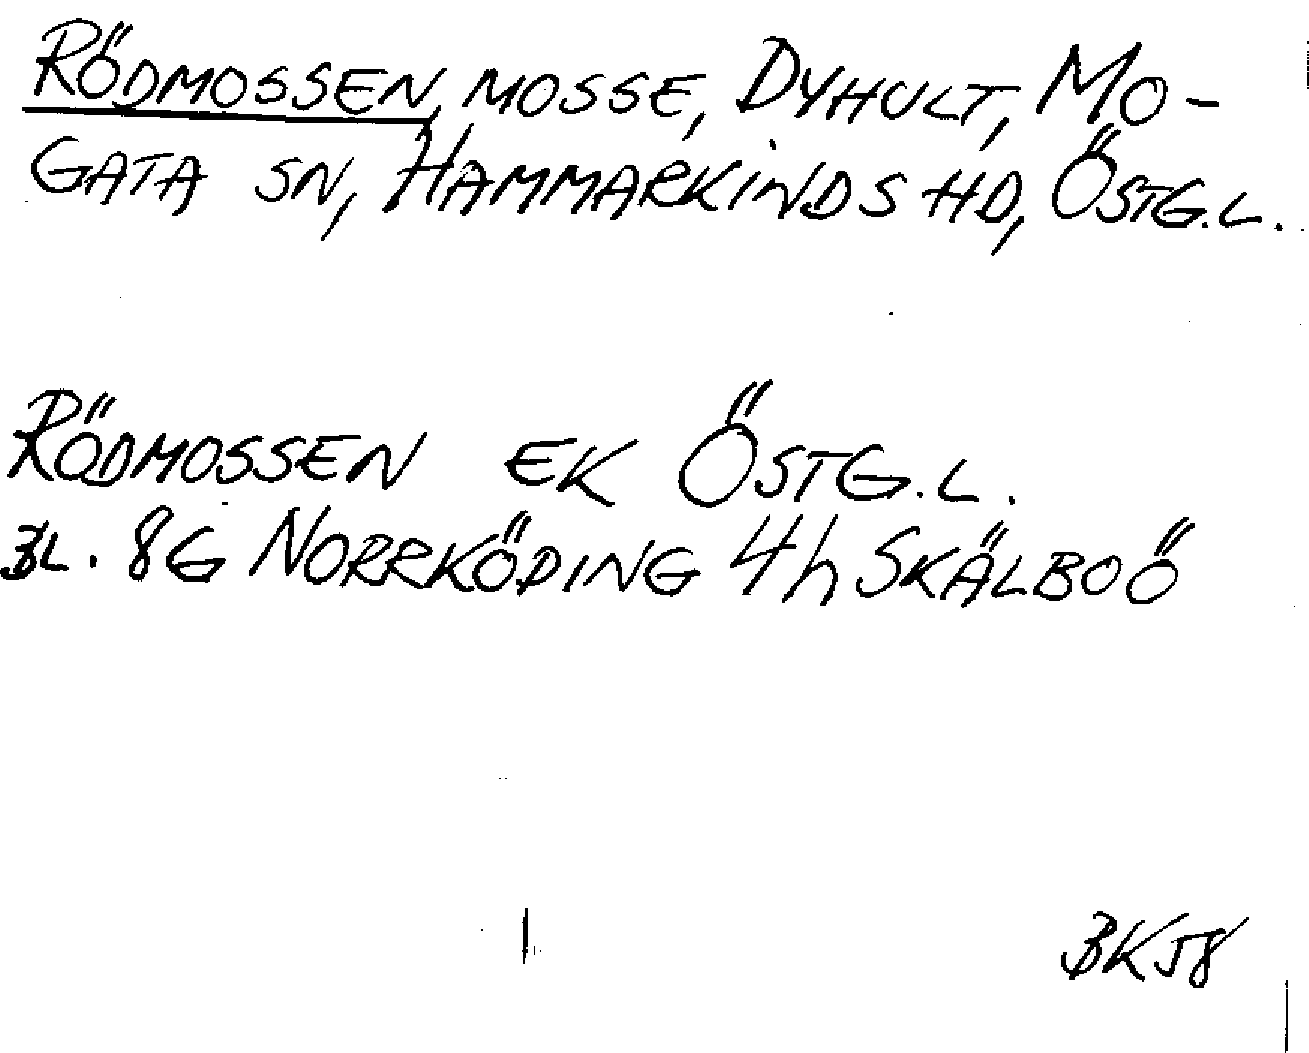 RÖDMOSSEN, MOSSE, DYHULT, MO-
GATA SN, HAMMARKINDS HD, ÖSTG.L.
RÖDMOSSEN EK ÖSTG.L.
BL. 8G NORRKÖDING 4h SKÄLBOÖ
BKJ8